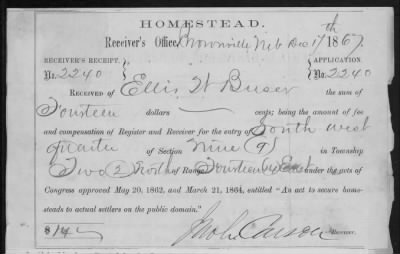 HOMESTEAD.
Receiver's Office, Brownville Neb Dec 17th 1867.
RECEIVER'S RECEIPT, APPLICATION,
No. 2240 No. 2240
RECEIVED OF Ellis W Buser the sum
Fourteen dollars cents; being the amount of fee
and compensation of Register and Receiver for the entry of South west
quarter of Section Nine (9) in Township
Two (2) North of Range Fourteen (14) East under the acts of
Congress approved May 20, 1862, and March 21, 1864, entitled "An act to secure home-
steads to actual settlers on the public domain."
$14 Carson Receiver.